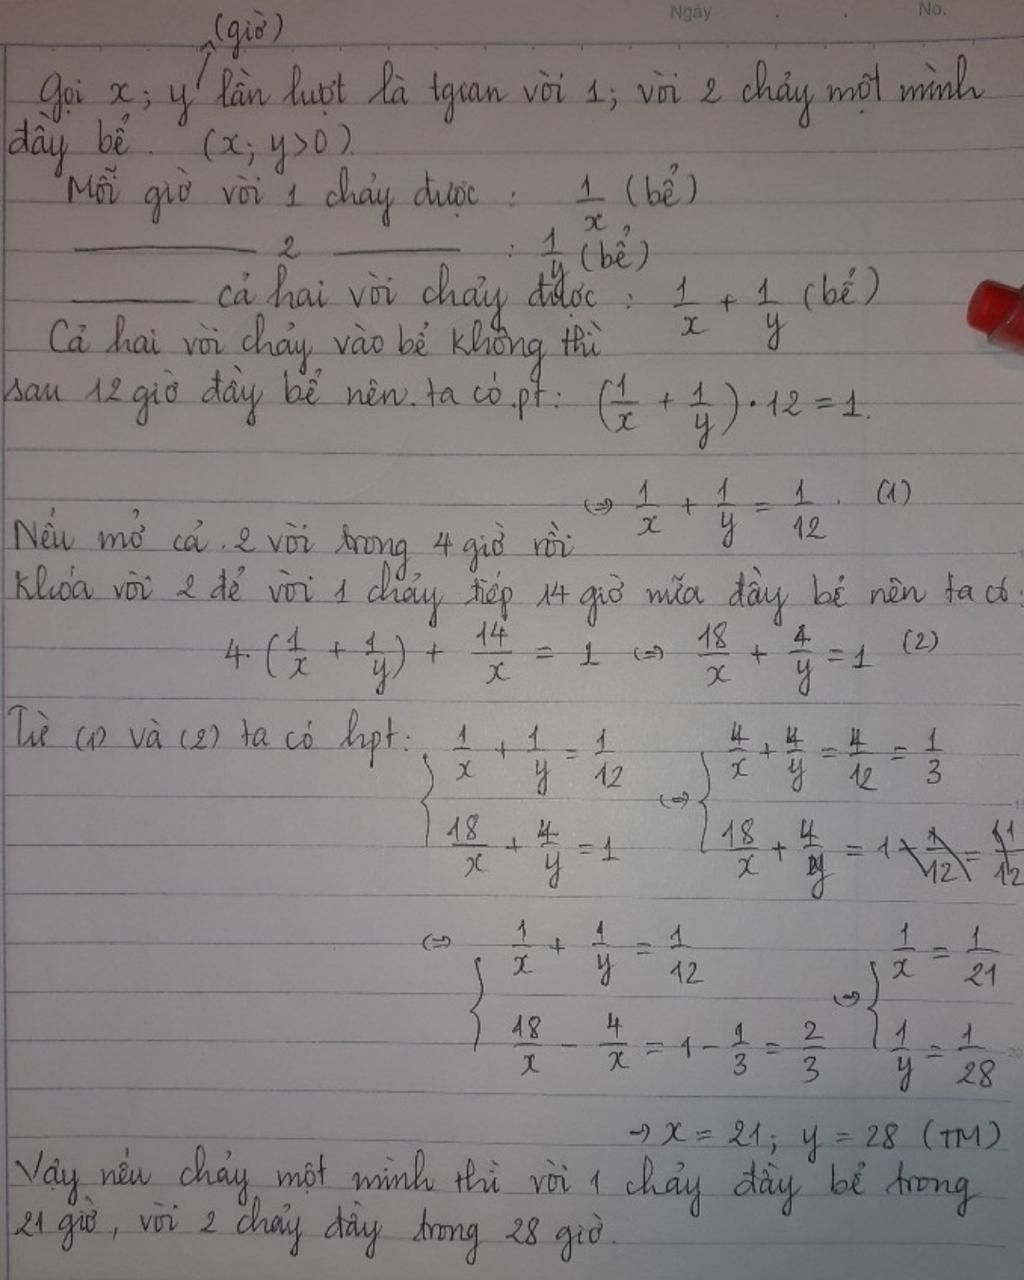 Ngày . . No.
(giờ)
Gọi x; y lần lượt là tgian vòi 1; vòi 2 chảy một mình
đầy bể. (x; y>0).
Mỗi giờ vòi 1 chảy được : 1/x (bể)
——— 2 ——— : 1/y (bể)
——— cả hai vòi chảy được : 1/x + 1/y (bể)
Cả hai vòi chảy vào bể không thì
sau 12 giờ đầy bể nên ta có pt: (1/x + 1/y) · 12 = 1.
⇔ 1/x + 1/y = 1/12 . (1)
Nếu mở cả 2 vòi trong 4 giờ rồi
khóa vòi 2 để vòi 1 chảy tiếp 14 giờ nữa đầy bể nên ta có:
4. (1/x + 1/y) + 14/x = 1 ⇔ 18/x + 4/y = 1 (2)
Từ (1) và (2) ta có hpt: { 1/x + 1/y = 1/12 ⇔ { 4/x + 4/y = 4/12 = 1/3
18/x + 4/y = 1 18/x + 4/y = 1 - 1/12 = 11/12
⇔ { 1/x + 1/y = 1/12 ⇔ { 1/x = 1/21
18/x - 4/x = 1 - 1/3 = 2/3 1/y = 1/28
→ x = 21; y = 28 (TM)
Vậy nếu chảy một mình thì vòi 1 chảy đầy bể trong
21 giờ, vòi 2 chảy đầy trong 28 giờ.